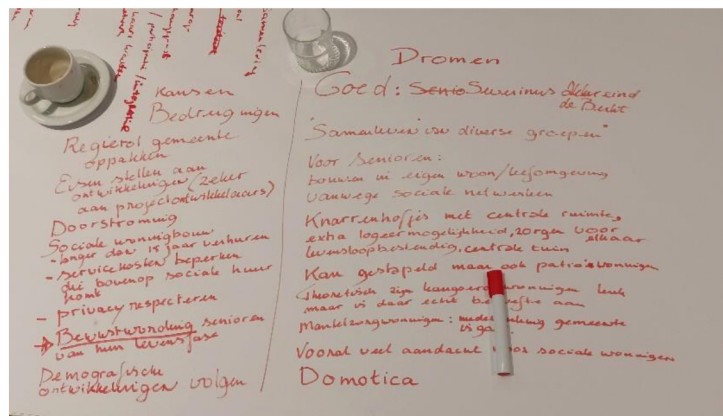 Kansen
Bedreigingen
Regierol gemeente
oppakken
Eisen stellen aan
ontwikkelingen (zeker
aan projectontwikkelaars)
Doorstroming
Sociale woningbouw
- langer dan 15 jaar verhuren
- servicekosten beperken
die bovenop sociale huur
komt
- privacy respecteren
→ Bewustwording senioren
van hun levensfase
Demografische
ontwikkelingen volgen
Dromen
Goed: Senio Severinus
de Berkt
"Samenleven van diverse groepen"
Voor Senioren:
bouwen in eigen woon/leefomgeving
vanwege sociale netwerken
Knarrenhofjes met centrale ruimte,
extra logeermogelijkheid, zorgen voor elkaar
levensloopbestendig, centrale tuin
Kan gestapeld maar ook patio's woningen
Theoretisch zijn kangoeroewoningen leuk
maar is daar echt behoefte aan
Mantelzorgwoningen: gemeente
Vooral veel aandacht voor sociale woningen
Domotica